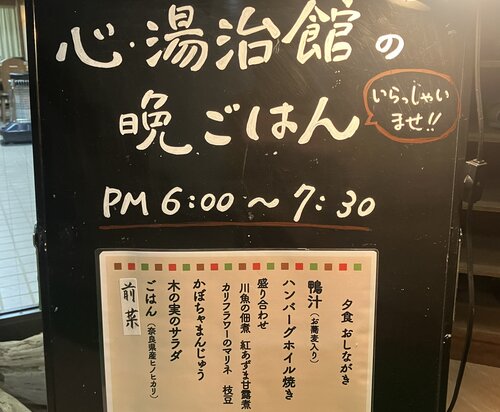 心・湯治館の
晩ごはん
いらっしゃい
ませ!!
PM 6:00〜7:30
夕食 おしながき
鴨汁（お蕎麦入り）
ハンバーグホイル焼き
盛り合わせ
川魚の佃煮 紅あずま甘露煮
カリフラワーのマリネ 枝豆
かぼちゃまんじゅう
木の実のサラダ
ごはん（奈良県産ヒノヒカリ）
前菜